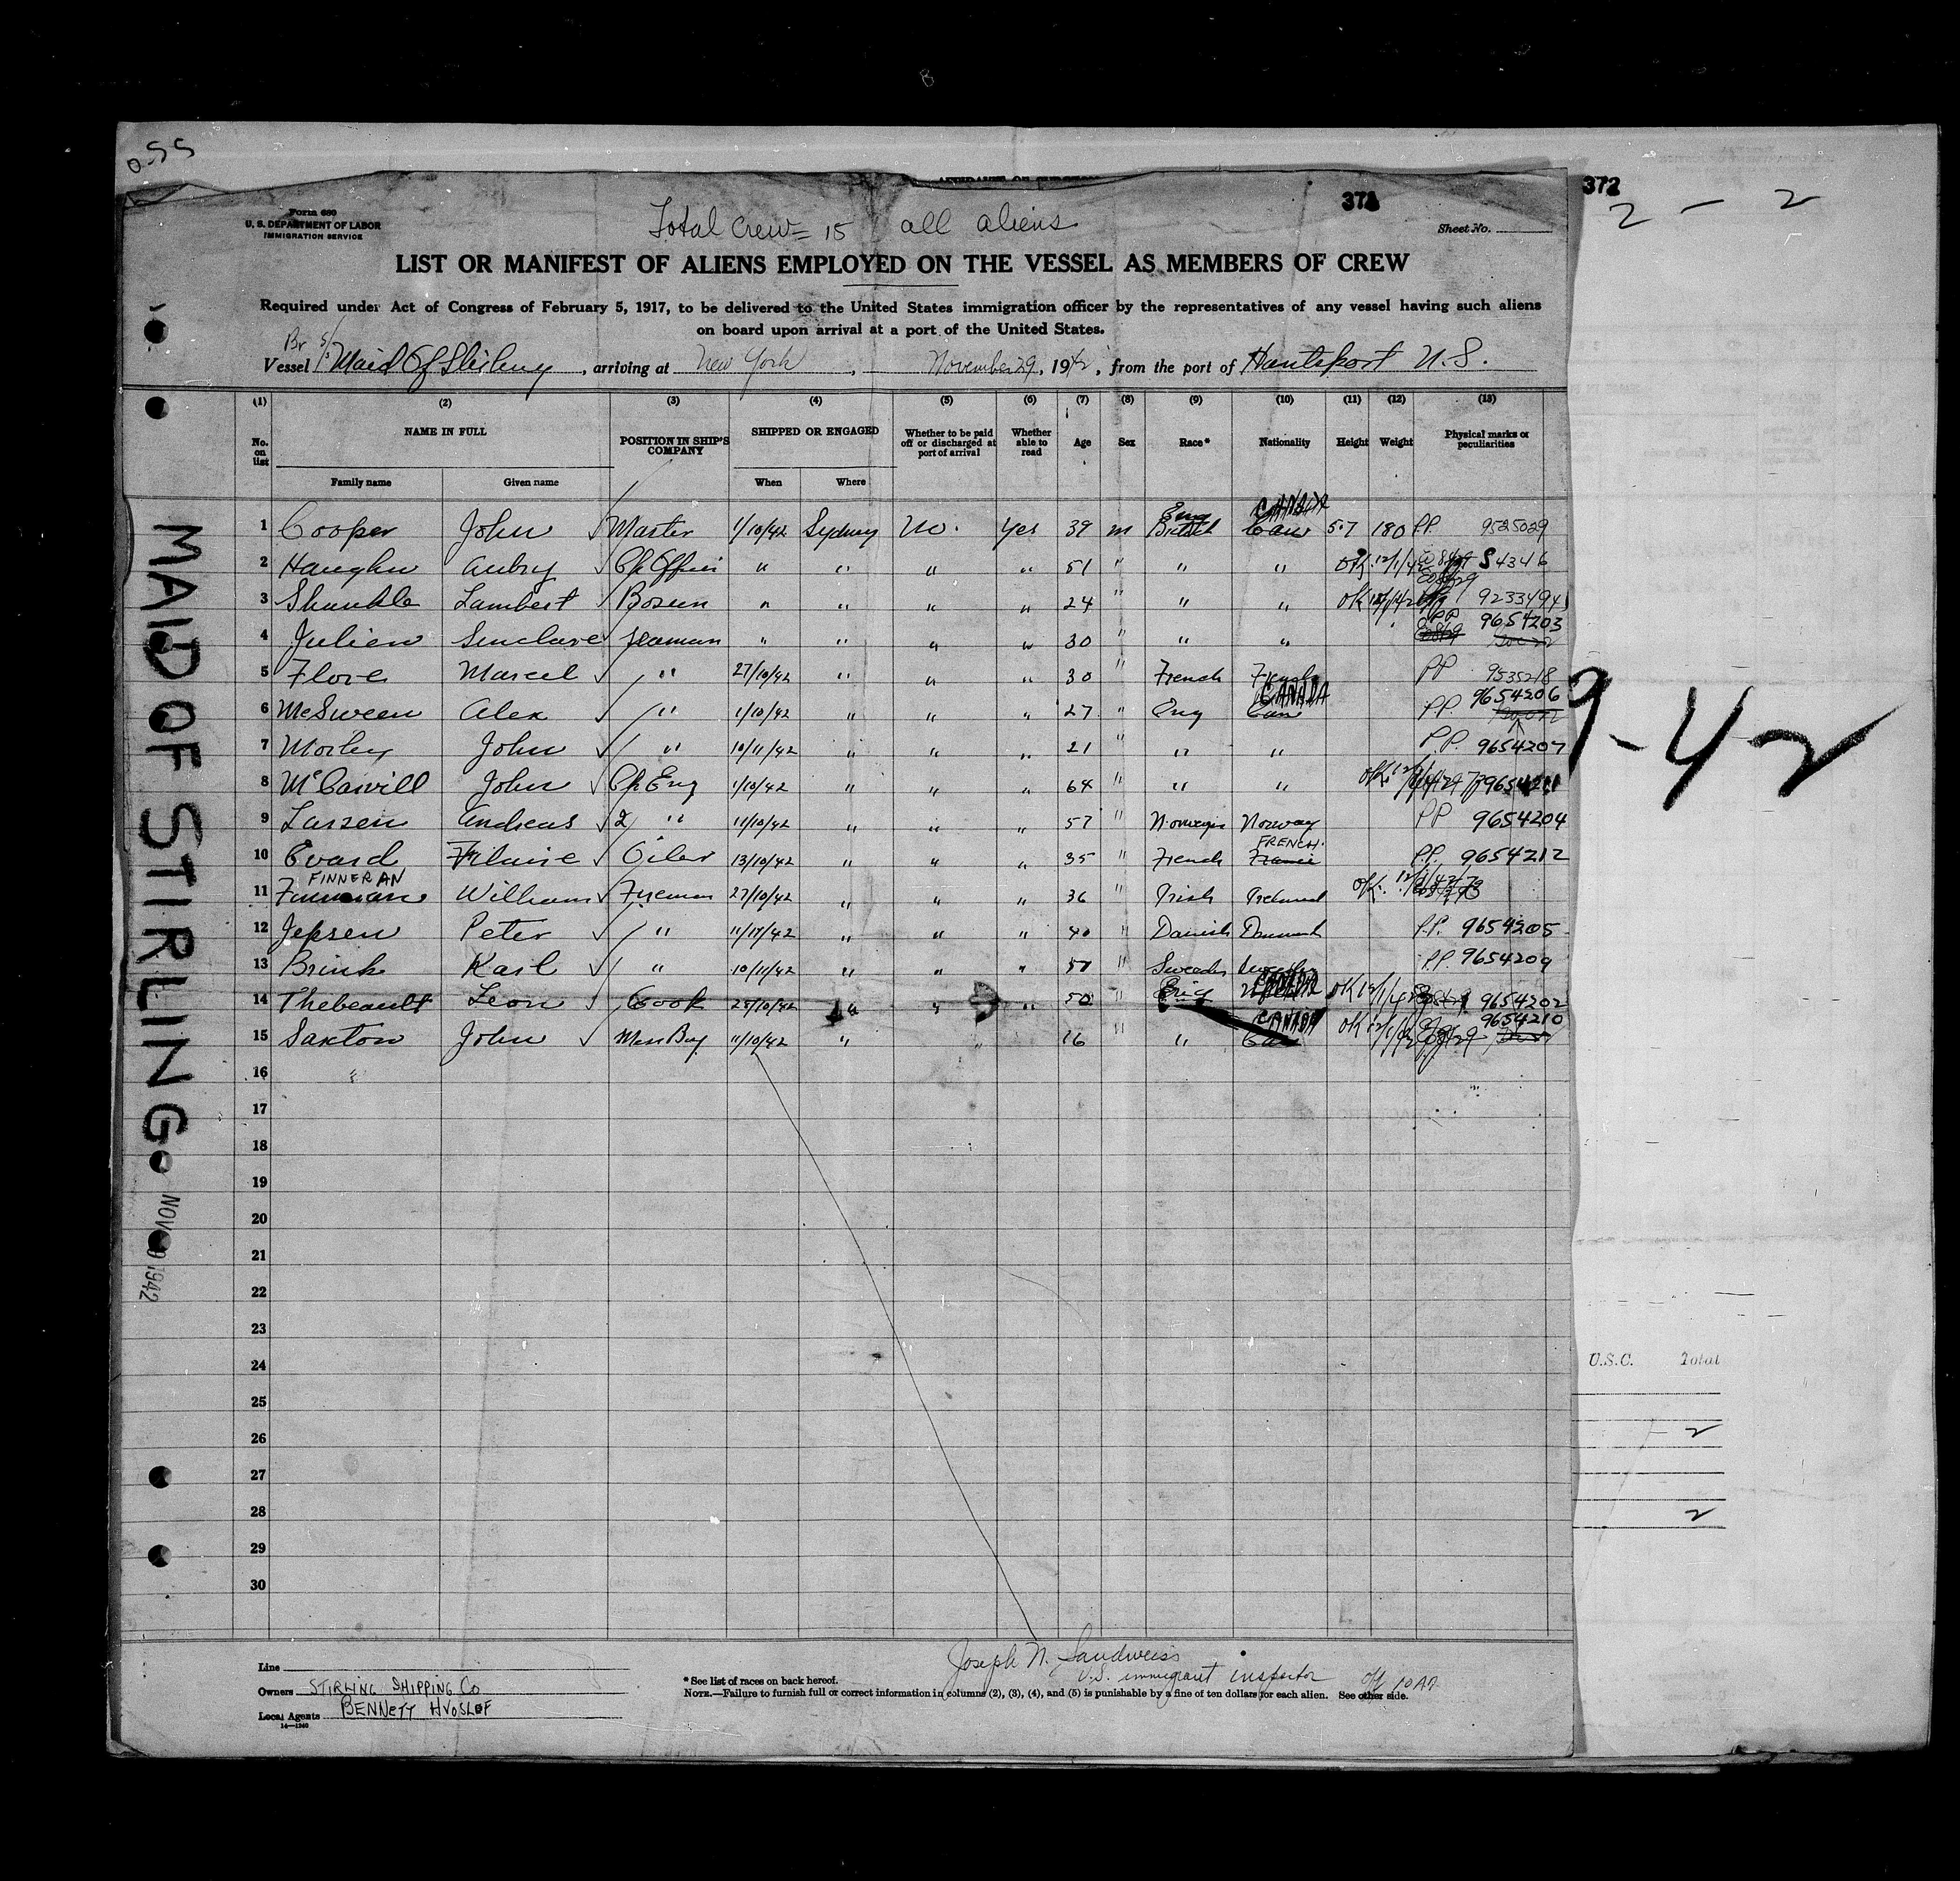 0-55
372
2 - 2
Form 680
U. S. DEPARTMENT OF LABOR
IMMIGRATION SERVICE
Total Crew = 15 all aliens
Sheet No.
LIST OR MANIFEST OF ALIENS EMPLOYED ON THE VESSEL AS MEMBERS OF CREW
Required under Act of Congress of February 5, 1917, to be delivered to the United States immigration officer by the representatives of any vessel having such aliens
on board upon arrival at a port of the United States.
Br S/S
Vessel Maid Of Stirling, arriving at New York, November 29, 1942, from the port of Hantsport N.S.
(1) (2) (3) (4) (5) (6) (7) (8) (9) (10) (11) (12) (13)
No. on list NAME IN FULL POSITION IN SHIP'S COMPANY SHIPPED OR ENGAGED Whether to be paid off or discharged at port of arrival Whether able to read Age Sex Race* Nationality Height Weight Physical marks or peculiarities
Family name Given name When Where
Eng CANADA
1 Cooper John Master 1/10/42 Sydney No. Yes 39 m British Can 5-7 180 PP. 9525029
2 Haughn Aubry Ch Officer " " " " 51 " " " OK 12/1/42 S4346
3 Lambert Bosun " " " " 24 " " " OK 9233494
PP 9654203
4 Julien Sinclare Seaman " " " " 30 " " "
5 Flore Marcel " 27/10/42 " " " 30 " French French PP 9535218
CANADA 9654206
6 McSween Alex " 1/10/42 " " " 27 " Eng Can P.P.
7 Morley John " 10/11/42 " " " 21 " " " P.P. 9654207
8 John Ch Eng 1/10/42 " " " 64 " " " OK 9654211
9 Larsen Andreas 2 " 11/10/42 " " " 57 " Norwegn Norway PP 9654204
FRENCH
10 Evard Oiler 13/10/42 " " " 35 " French France P.P. 9654212
FINNERAN
11 William Fireman 27/10/42 " " " 36 " Irish Ireland OK
12 Jepsen Peter " " " " 40 " Danish Denmark P.P. 9654205
13 Brink Karl " 10/11/42 " " " 57 " Sweden P.P. 9654209
CANADA
14 Thebeault Leon Cook " " " 50 " OK 12/1/42 9654202
CANADA 9654210
15 Saxton John Mess Boy 11/10/42 " " 16 " " Can OK 12/1/42
16
17
18
19
20
21
22
23
24
25
26
27
28
29
30
MAID OF STIRLING
NOV 1942
9-42
U.S.C. Total
2
2
Line
Owners STIRLING SHIPPING CO
Local Agents BENNETT HVOSLEF
14—1240
Joseph N. Sandweiss
U.S. immigrant inspector
* See list of races on back hereof.
NOTE.—Failure to furnish full or correct information in columns (2), (3), (4), and (5) is punishable by a fine of ten dollars for each alien. See other side.